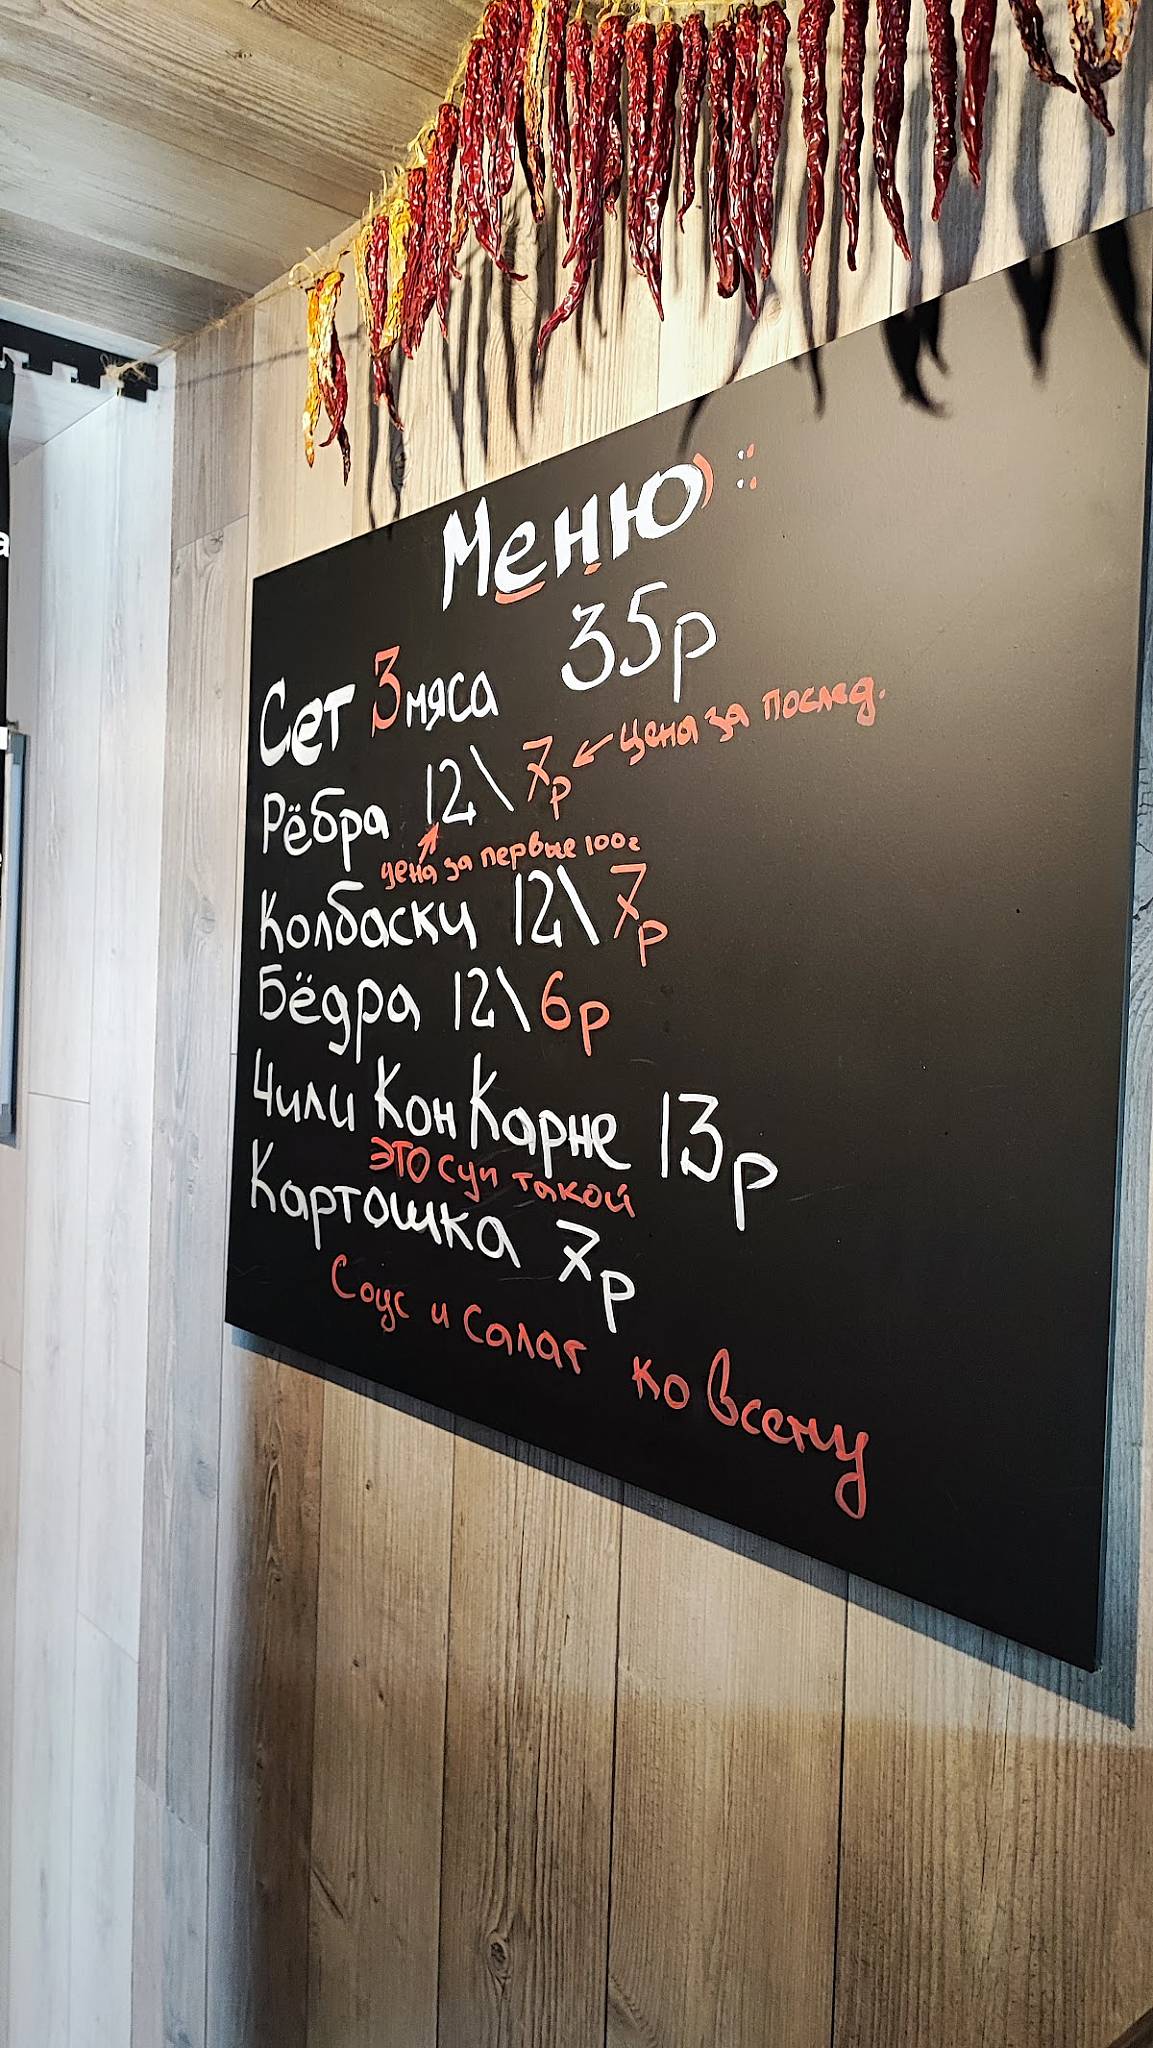 Меню
Сет 3 мяса 35р
Рёбра 12\7р ← цена за послед.
цена за первые 100г
Колбаски 12\7р
Бёдра 12\6р
Чили Кон Карне 13р
это суп такой
Картошка 7р
Соус и салат ко всему